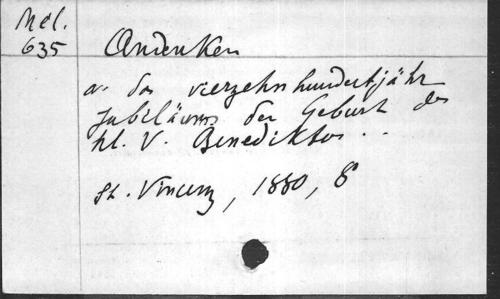 Mel.
635
Andenken
a. das vierzehnhundertjähr
Jubiläum der Geburt des
hl. V. Benediktus . .
St. Vincenz, 1880, 8°